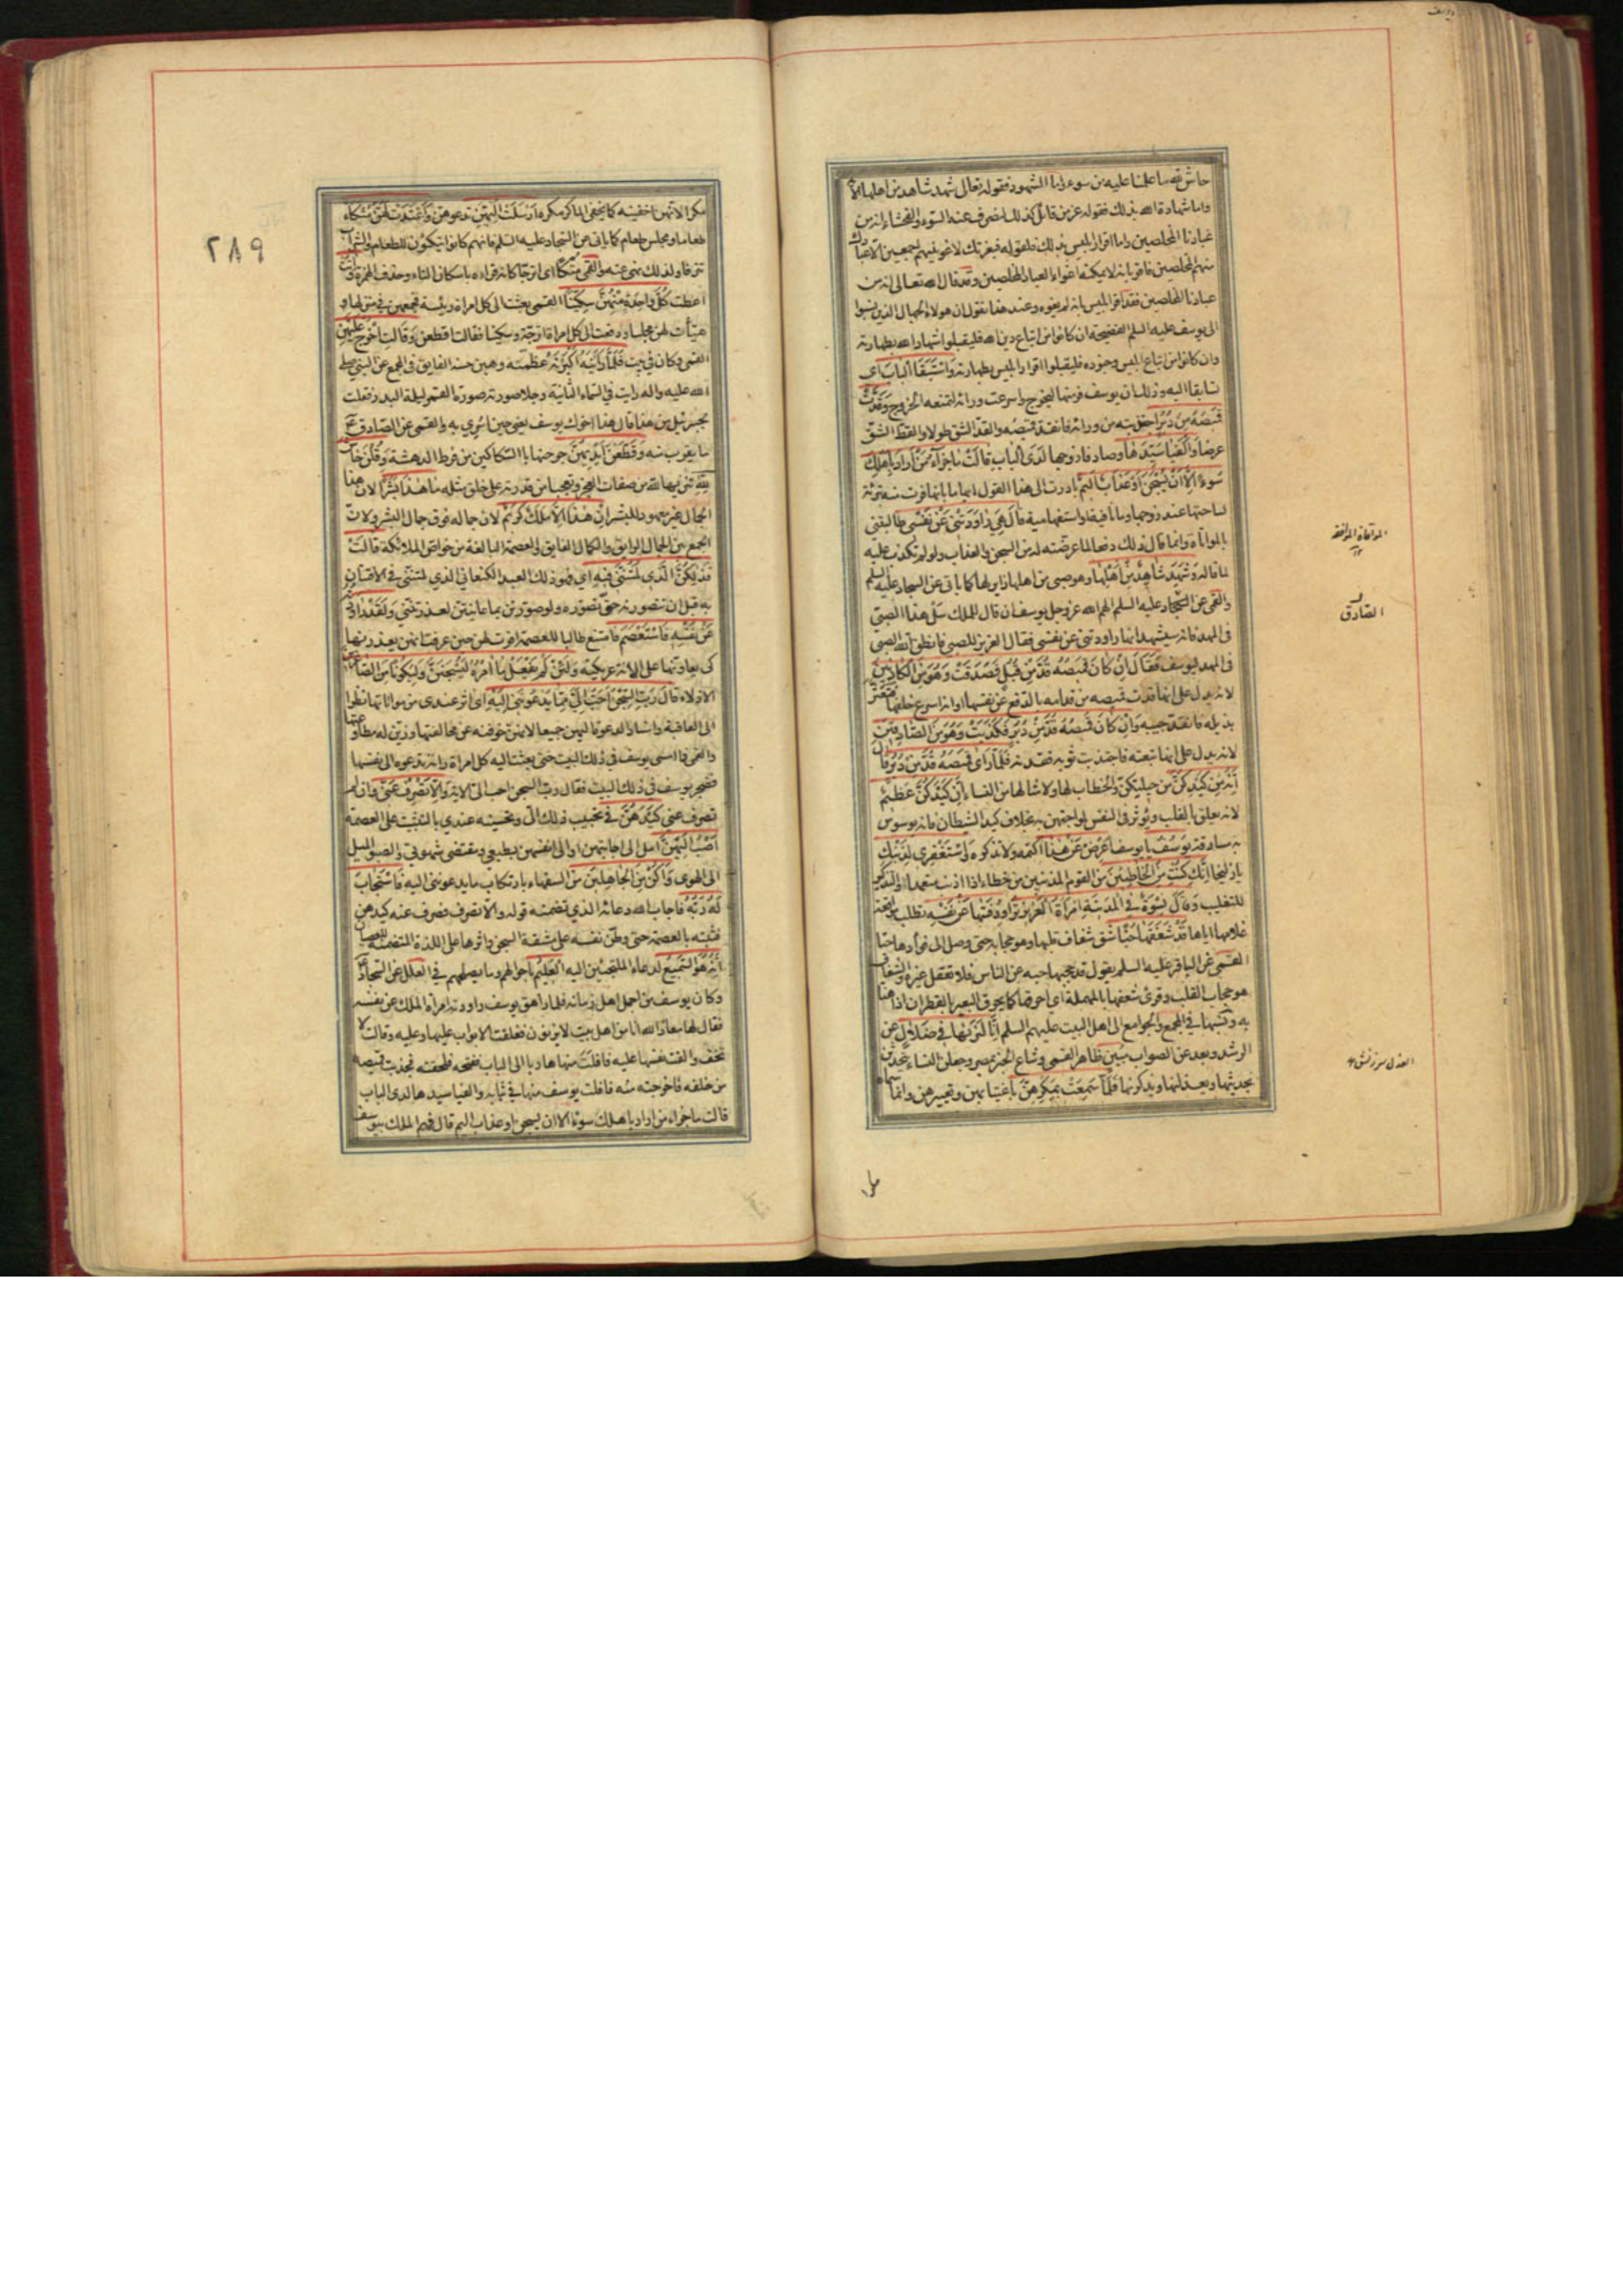 يوسف
حاش لله ما علمنا عليه من سوء واما الشهود فقوله تعالى شهد شاهد من اهلها الآ
واما شهادة الله بذلك فقوله عز من قائل كذلك لنصرف عنه السوء والفحشاء انه من
عبادنا المخلصين واما اقرار ابليس بذلك فلقوله فبعزتك لاغوينهم اجمعين الا عبادك
منهم المخلصين فاقر بانه لا يمكنه اغواء العباد المخلصين وقد قال الله تعالى انه من
عبادنا المخلصين فقد اقر ابليس بانه لم يغوه وعند هذا نقول ان هولاء الجهال الذين نسبوا
الى يوسف عليه السلم الفضيحة ان كانوا من اتباع دين الله فليقبلوا شهادة الله بطهارته
وان كانوا من اتباع ابليس وجنوده فليقبلوا اقرار ابليس بطهارته وَاسْتَبَقَا الْبَابَ اى
تسابقا اليه وذلك ان يوسف فر منها ليخرج واسرعت وراءه لتمنعه الخروج وَقَدَّتْ
قَمِيصَهُ مِنْ دُبُرٍ اجتذبته من ورائه فانقد قميصه والقد الشق طولا والقط الشق
عرضا وَأَلْفَيَا سَيِّدَهَا وصادفا زوجها لَدَى الْبَابِ قَالَتْ مَا جَزَاءُ مَنْ أَرَادَ بِأَهْلِكَ
سُوءًا إِلَّا أَنْ يُسْجَنَ أَوْ عَذَابٌ أَلِيمٌ بادرت الى هذا القول ايهاما بانها فرت منه تبرئة
لساحتها عند زوجها وما نافية او استفهامية قَالَ هِيَ رَاوَدَتْنِي عَنْ نَفْسِي طالبتنى
بالمواتاة وانما قال ذلك دفعا لما عرضته له من السجن والعذاب ولو لم تكذب عليه
لما قاله وَشَهِدَ شَاهِدٌ مِنْ أَهْلِهَا وهو صبى من اهلها زاير لها كما ياتى عن السجاد عليه السلم
والقمى عن السجاد عليه السلم الهم الله عز وجل يوسف ان قال للملك سل هذا الصبى
فى المهد فانه سيشهد انها راودتنى عن نفسى فقال العزيز للصبى فانطق الله الصبى
فى المهد ليوسف فقال إِنْ كَانَ قَمِيصُهُ قُدَّ مِنْ قُبُلٍ فَصَدَقَتْ وَهُوَ مِنَ الْكَاذِبِينَ
لانه يدل على انها قدت قميصه من قدامه بالدفع عن نفسها او انه اسرع خلفها فتعثر
بذيله فانقد جيبه وَإِنْ كَانَ قَمِيصُهُ قُدَّ مِنْ دُبُرٍ فَكَذَبَتْ وَهُوَ مِنَ الصَّادِقِينَ
لانه يدل على انها تبعته فاجتذبت ثوبه فقدته فَلَمَّا رَأَى قَمِيصَهُ قُدَّ مِنْ دُبُرٍ قَالَ
إِنَّهُ مِنْ كَيْدِكُنَّ من حيلتكن والخطاب لها ولامثالها من النساء إِنَّ كَيْدَكُنَّ عَظِيمٌ
لانه يعلق بالقلب ويؤثر فى النفس لمواجهتهن به بخلاف كيد الشيطان فانه يوسوس
به مسارقة يُوسُفُ يا يوسف أَعْرِضْ عَنْ هَذَا اكتمه ولا تذكره وَاسْتَغْفِرِي لِذَنْبِكِ
يا زليخا إِنَّكِ كُنْتِ مِنَ الْخَاطِئِينَ من القوم المذنبين من خطاء اذا اذنب متعمدا والتذكير
للتغليب وَقَالَ نِسْوَةٌ فِي الْمَدِينَةِ امْرَأَةُ الْعَزِيزِ تُرَاوِدُ فَتَاهَا عَنْ نَفْسِهِ تطلب مواقعة
غلامها اياها قَدْ شَغَفَهَا حُبًّا شق شغاف قلبها وهو حجابه حتى وصل الى فؤادها حبا
القمى عن الباقر عليه السلم يقول قد حجبها حبه عن الناس فلا تعقل غيره والشغاف
هو حجاب القلب وقرئ شعفها بالمهملة اى احرقها كما يحرق البعير بالقطران اذا هنأ
به ونسبها فى المجمع والجوامع الى اهل البيت عليهم السلم إِنَّا لَنَرَاهَا فِي ضَلَالٍ عن
الرشد وبعد عن الصواب مُبِينٍ ظاهر القمى وشاع الخبر بمصر وجعلن النساء يتحدثن
بحديثها ويعذلنها ويذكرنها فَلَمَّا سَمِعَتْ بِمَكْرِهِنَّ باغتيابهن وتعييرهن وانما سماه
المواتاة الموافقة
الصادق
العذل سرزنش
٢٨٩
مكرا لانهن اخفينه كما يخفى الماكر مكره أَرْسَلَتْ إِلَيْهِنَّ تدعوهن وَأَعْتَدَتْ لَهُنَّ مُتَّكَأً
طعاما ومجلس طعام كما ياتى عن السجاد عليه السلم فانهم كانوا يتكؤن للطعام والشراب
تترفا ولذلك نهى عنه والقمى متكا اى اترجا كانه قراءه باسكان التاء وحذف الهمزة وَآتَتْ
اعطت كُلَّ وَاحِدَةٍ مِنْهُنَّ سِكِّينًا القمى بعثت الى كل امراة رئيسة فجمعهن فى منزلها و
هيأت لهن مجلسا ودفعت الى كل امراة اترجة وسكينا فقالت اقطعن وَقَالَتِ اخْرُجْ عَلَيْهِنَّ
القمى وكان فى بيت فَلَمَّا رَأَيْنَهُ أَكْبَرْنَهُ عظمنه وهبن حسنه الفايق فى المجمع عن النبي صلى
الله عليه واله رايت فى السماء الثانية رجلا صورته صورة القمر ليلة البدر فقلت
لجبرئيل من هذا قال هذا اخوك يوسف يعنى حين اسرى به والقمى عن الصادق
ما يقرب منه وَقَطَّعْنَ أَيْدِيَهُنَّ جرحنها بالسكاكين من فرط الدهشة وَقُلْنَ حَاشَ
لِلَّهِ تنزيها لله من صفات العجز وتعجبا من قدرته على خلق مثله مَا هَذَا بَشَرًا لان هذا
الجمال غير معهود للبشر إِنْ هَذَا إِلَّا مَلَكٌ كَرِيمٌ لان جماله فوق جمال البشر ولان
الجمع بين الجمال الرايق والكمال الفايق والعصمة البالغة من خواص الملائكة قَالَتْ
فَذَلِكُنَّ الَّذِي لُمْتُنَّنِي فِيهِ اى فهو ذلك العبد الكنعانى الذى لمتننى فى الافتتان
به قبل ان تتصورنه حق تصوره ولو صورتن بما عاينتن لعذرتننى وَلَقَدْ رَاوَدْتُهُ
عَنْ نَفْسِهِ فَاسْتَعْصَمَ فامتنع طالبا للعصمة اقرت لهن حين عرفت انهن يعذرنها
كى يعاونها على الانة عريكته وَلَئِنْ لَمْ يَفْعَلْ مَا آمُرُهُ لَيُسْجَنَنَّ وَلَيَكُونًا مِنَ الصَّاغِرِينَ
الاذلاء قَالَ رَبِّ السِّجْنُ أَحَبُّ إِلَيَّ مِمَّا يَدْعُونَنِي إِلَيْهِ اى اثر عندى من مواتاتها نظرا
الى العاقبة واسناد الدعوة اليهن جميعا لانهن خوفنه عن مخالفتها وزين له مطاوعتها
والقمى فما امسى يوسف فى ذلك البيت حتى بعثت اليه كل امراة راته تدعوه الى نفسها
فضجر يوسف فى ذلك البيت فقال رب السجن احب الى الاية وَإِلَّا تَصْرِفْ عَنِّي وان لم
تصرف عنى كَيْدَهُنَّ فى تحبيب ذلك الى وتحسينه عندى بالتثبيت على العصمة
أَصْبُ إِلَيْهِنَّ امل الى اجابتهن او الى انفسهن بطبعى ومقتضى شهوتى والصبو الميل
الى الهوى وَأَكُنْ مِنَ الْجَاهِلِينَ من السفهاء بارتكاب ما يدعوننى اليه فَاسْتَجَابَ
لَهُ رَبُّهُ فاجاب الله دعائه الذى تضمنه قوله والا تصرف فَصَرَفَ عَنْهُ كَيْدَهُنَّ
فثبته بالعصمة حتى وطن نفسه على مشقة السجن واثرها على اللذة المتضمنة للعصيان
إِنَّهُ هُوَ السَّمِيعُ لدعاء الملتجئين اليه الْعَلِيمُ باحوالهم وما يصلحهم فى العلل عن السجاد
وكان يوسف من اجمل اهل زمانه فلما راهق يوسف راودته امراة الملك عن نفسه
فقال لها معاذ الله انا من اهل بيت لا يزنون فغلقت الابواب عليها وعليه وقالت لا
تخف والقت نفسها عليه فافلت منها هاربا الى الباب ففتحه فلحقته فجذبت قميصه
من خلفه فاخرجته منه فافلت يوسف منها فى ثيابه والفيا سيدها لدى الباب
قالت ما جزاء من اراد باهلك سوءا الا ان يسجن او عذاب اليم قال فهم الملك بيوسف